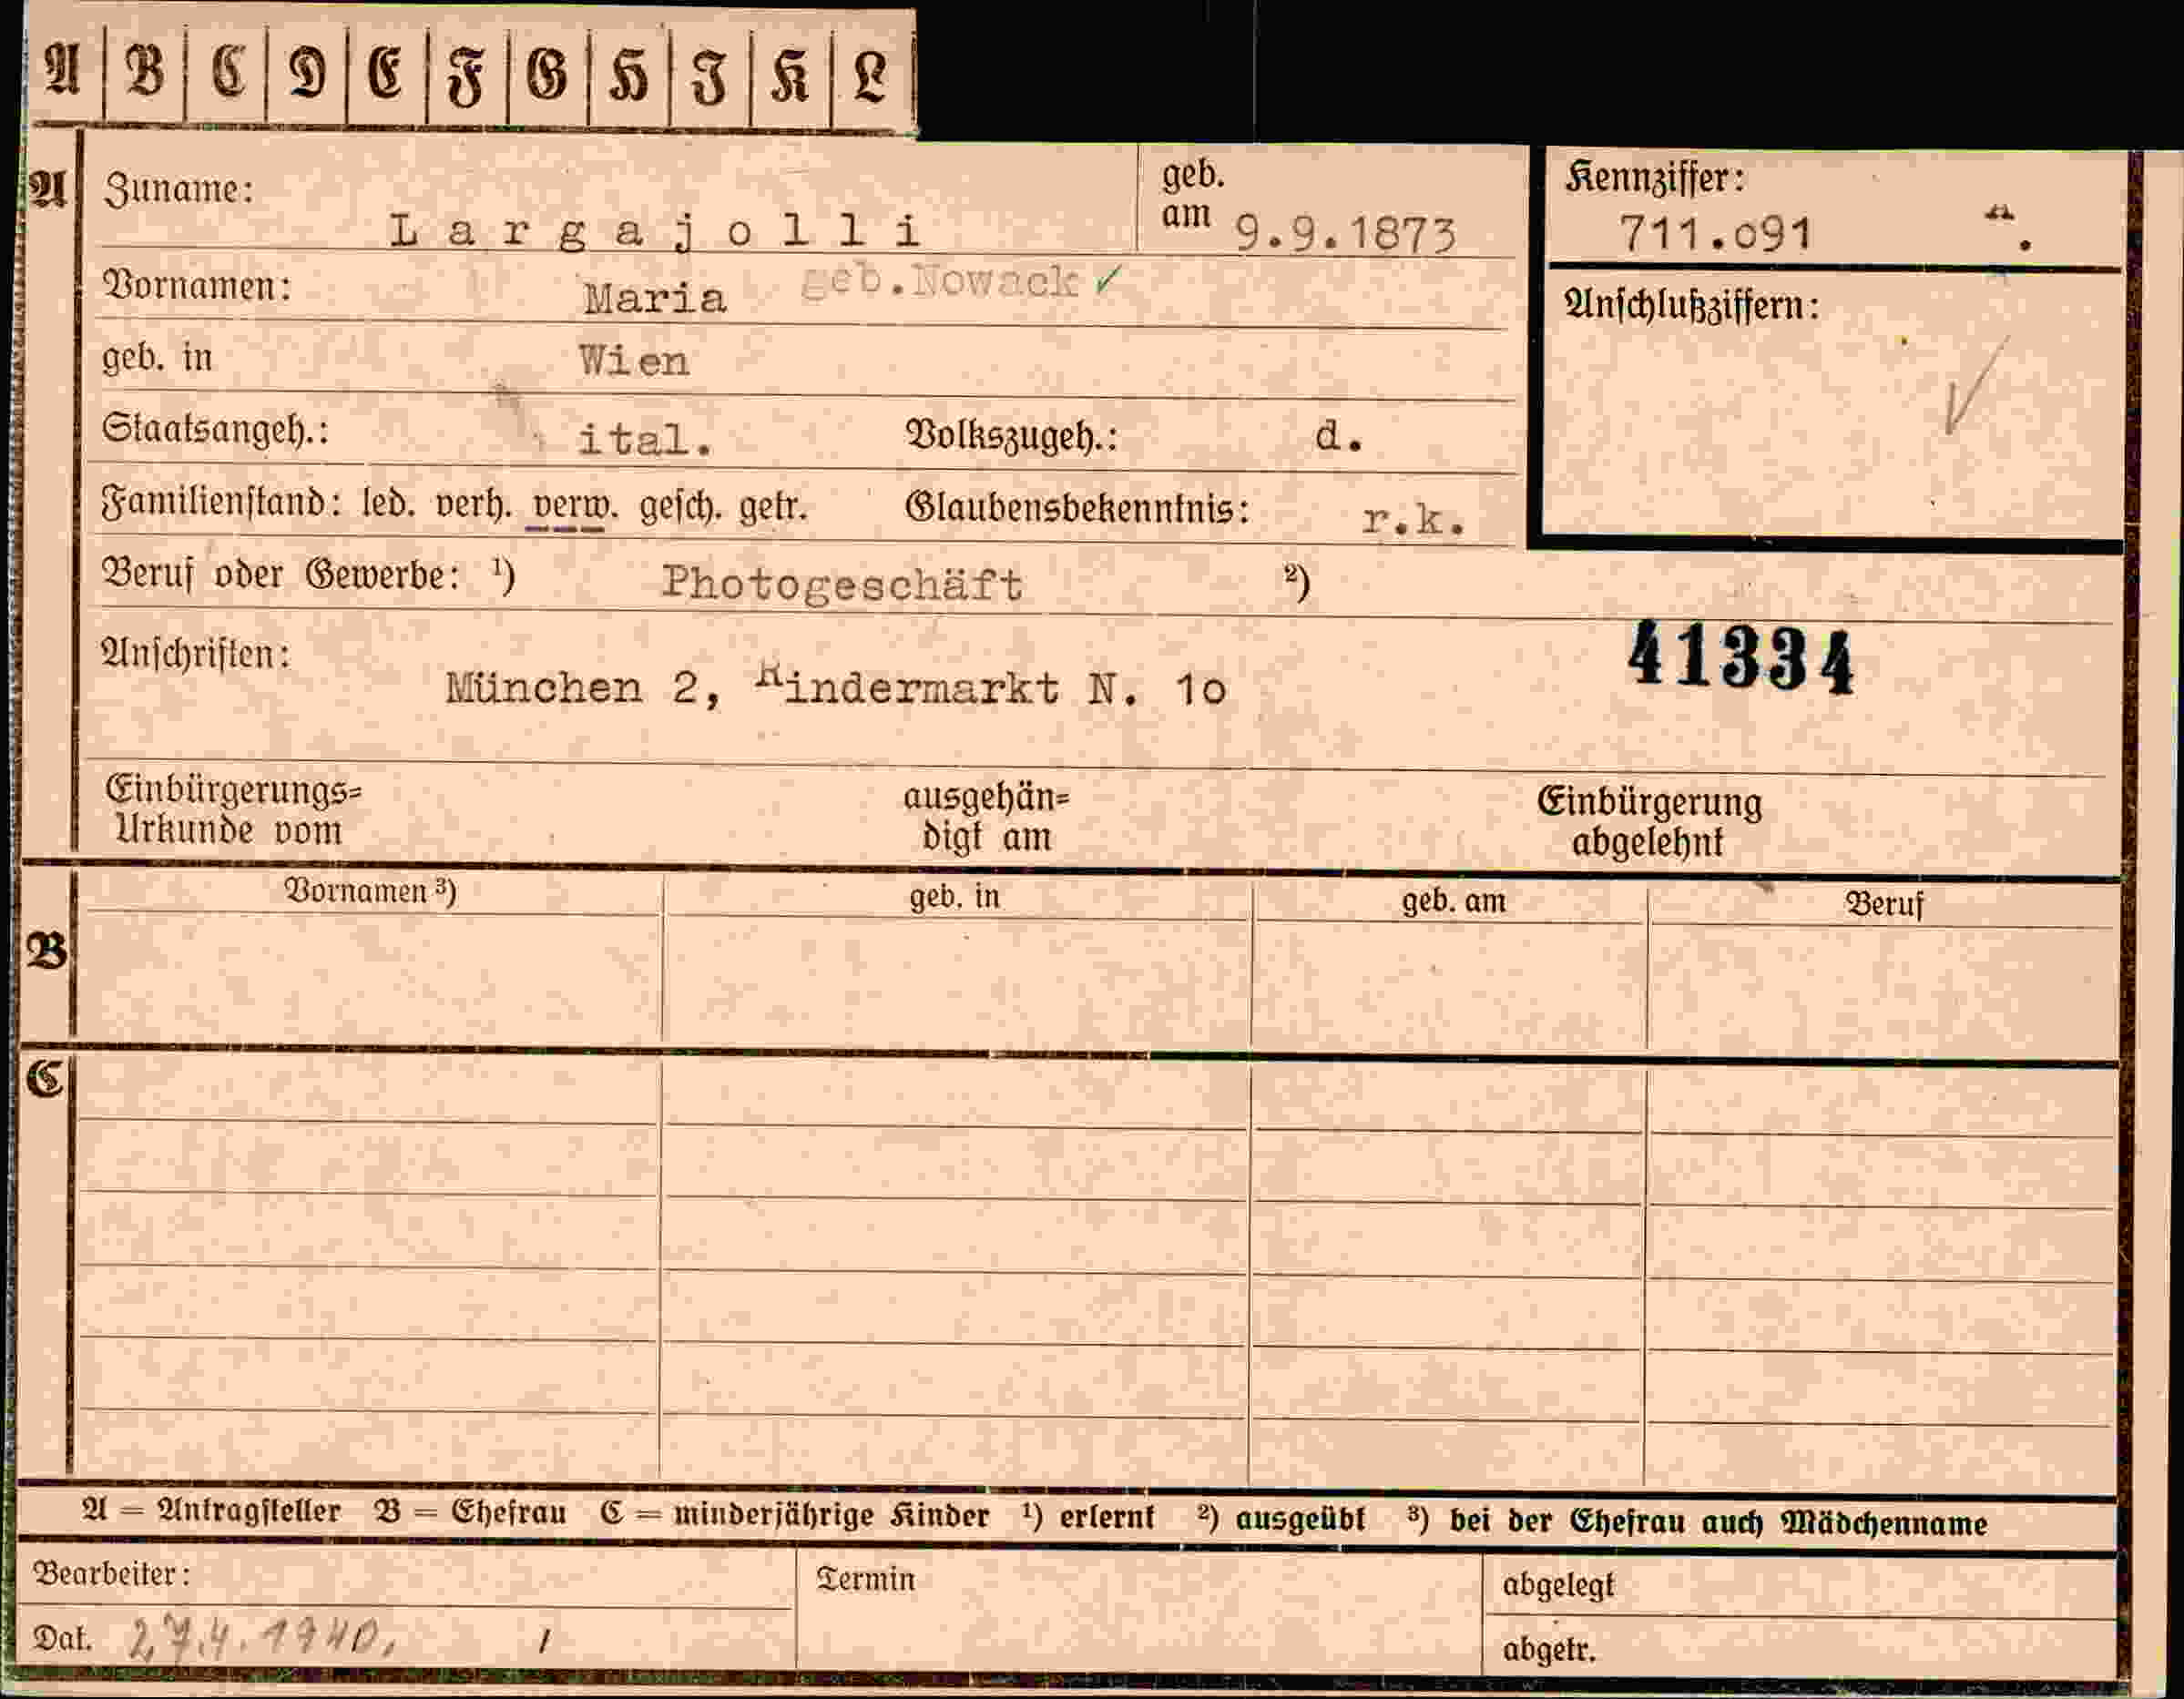 A B C D E F G H I K L
A Zuname: Largajolli geb. am 9.9.1873 Kennziffer: 711.o91
Vornamen: Maria geb.Nowack ✓ Anschlußziffern:
geb. in Wien
Staatsangeh.: ital. Volkszugeh.: d.
Familienstand: led. verh. verw. gesch. getr. Glaubensbekenntnis: r.k.
Beruf oder Gewerbe: ¹) Photogeschäft ²)
41334
Anschriften: München 2, Rindermarkt N. 1o
Einbürgerungs= Urkunde vom ausgehän= digt am Einbürgerung abgelehnt
Vornamen ³) geb. in geb. am Beruf
B
C
A = Antragsteller B = Ehefrau C = minderjährige Kinder ¹) erlernt ²) ausgeübt ³) bei der Ehefrau auch Mädchenname
Bearbeiter: Termin abgelegt
Dat. 27.4.1940. abgetr.